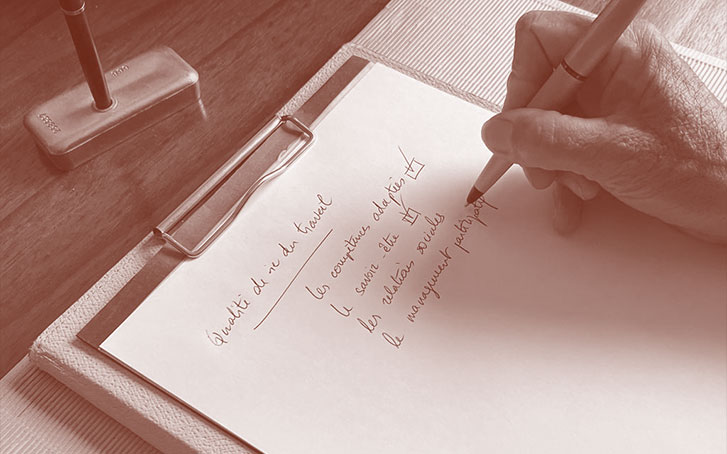 Qualité de vie du travail
les compétences adaptées
le savoir-être
les relations sociales
le management participatif